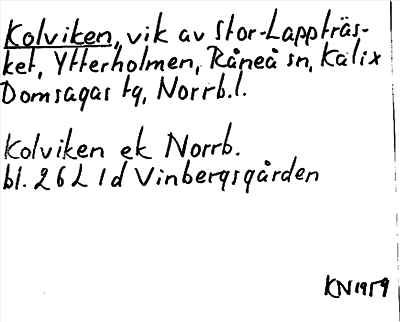 Kolviken, vik av Stor-Lappträs-
ket, Ytterholmen, Råneå sn, Kalix
Domsagas tg, Norrb.l.
Kolviken ek Norrb.
bl. 26 L 1d Vinbergsgården
KN 1959